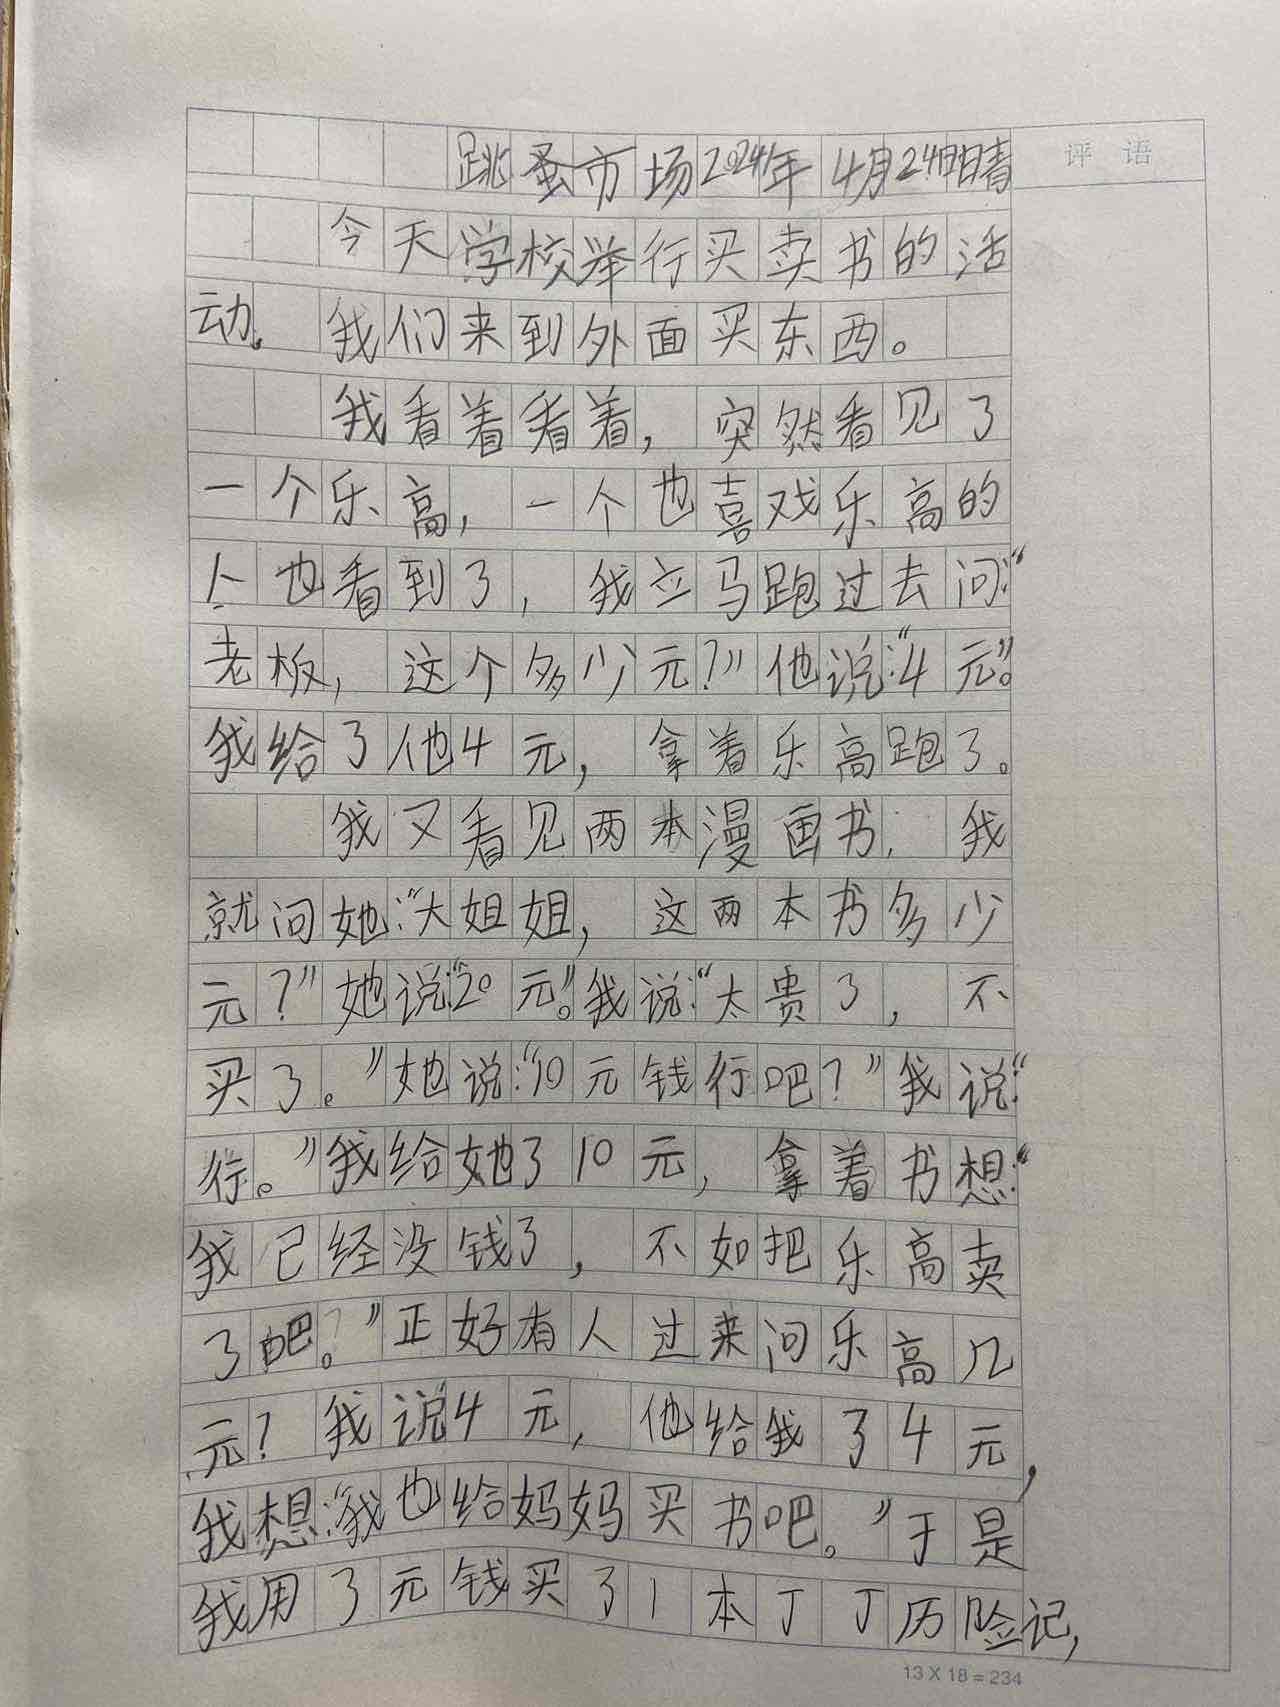 跳蚤市场2024年4月24日晴
评语
今天学校举行买卖书的活
动。我们来到外面买东西。
我看着看着，突然看见了
一个乐高，一个也喜戏乐高的
人也看到了，我立马跑过去问：“
老板，这个多少元？”他说：“4元”。
我给了他4元，拿着乐高跑了。
我又看见两本漫画书，我
就问她：“大姐姐，这两本书多少
元？”她说：“20元”。我说：“太贵了，不
买了。”她说：“10元钱行吧？”我说：“
行。”我给她了10元，拿着书想：“
我已经没钱了，不如把乐高卖
了吧。”正好有人过来问乐高几
元？我说4元，他给我了4元，
我想：“我也给妈妈买书吧。”于是
我用了元钱买了1本丁丁历险记，
13X18=234